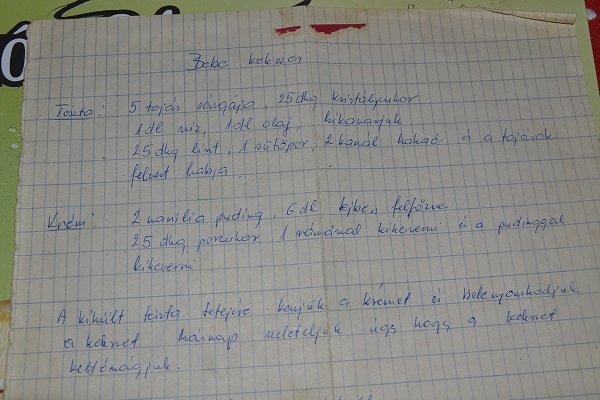 Bebe kekszes
Tészta: 5 tojás sárgája, 25 dkg kristálycukor
1 dl víz, 1 dl olaj, kikavarjuk
25 dkg liszt, 1 sütőpor, 2 kanál kakaó és a tojások
felvert habja.
Krém: 2 vanília puding, 6 dl tejben felfőzve
25 dkg porcukor 1 rámával kikeverni és a pudinggal
kikeverni
A kihűlt tészta tetejére kenjük a krémet és belenyomkodjuk
a kekszet másnap szeleteljük úgy hogy a kekszet
kettévágjuk.